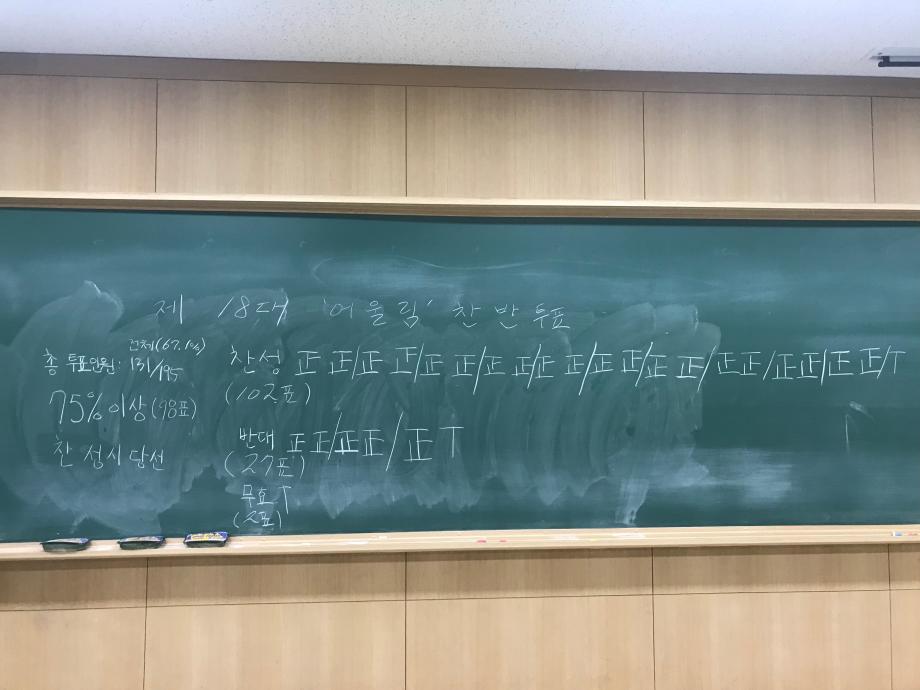 제 18대 '어울림' 찬반투표
전체(67.1%)
총 투표인원: 131/195
75%이상(98표)
찬성시 당선
찬성 正 正/正 正/正 正/正 正/正 正/正 正/正 正/正 正/正 正/正 正/T
(102표)
반대 正 正/正 正/正 T
(27표)
무효 T
(2표)